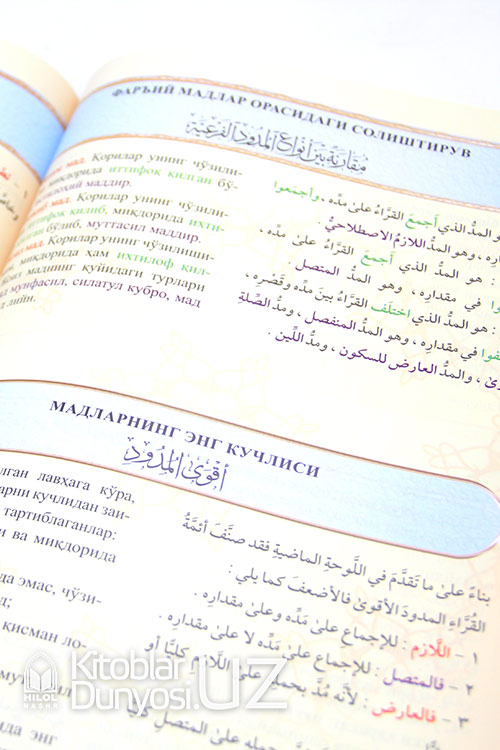 ФАРЪИЙ МАДЛАР ОРАСИДАГИ СОЛИШТИРУВ
مقارنة بين أنواع المدود الفرعية
мад. Қорилар унинг чўзили-
иттифоқ қилган бў-
маддир.
мад. Қорилар унинг чўзили-
қилиб, миқдорида ихти-
бўлиб, муттасил маддир.
мад. Қорилар унинг чўзилиши-
миқдорида ҳам ихтилоф қил-
маднинг қуйидаги турлари
мунфасил, силатул кубро, мад
лийн.
المد الذي أجمع القرّاءُ على مدِّه ، وأجمعوا
، وهو المدُّ اللازمُ الاصطلاحيُّ .
: هو المد الذي أجمعَ القرَّاءُ على مدِّه ،
في مقداره ، وهو المد المتصل .
: هو المدُّ الذي اختلف القرَّاءُ بينَ مدِّه وقصْرِه ،
في مقداره ، وهو المد المنفصل ، ومدُّ الصِّلة
، والمدُّ العارض للسكون ، ومدُّ اللِّين .
МАДЛАРНИНГ ЭНГ КУЧЛИСИ
أقوى المدود
лган лавҳага кўра,
арни кучлидан заи-
тартиблаганлар:
и ва миқдорида
да эмас, чўзи-
д;
қисман ло-
бناءً على ما تقدَّمَ في اللَّوحةِ الماضيةِ فقد صنَّفَ أئمَّةُ
القُرَّاءِ المدودَ الأقوىٰ فالأضعفَ كما يلي :
١ - اللَّازم : للإجماع على مَدِّه وعلى مقدارِه .
٢ - فالمتصل : للإجماع على مَدِّه لا على مقدارِه .
٣ - فالعارض : لأنَّه مُدَّ بحملِهِ على اللَّازمِ كليًّا أو
على المتصل
Kitoblar
Dunyosi.UZ
HILOL
NASHR